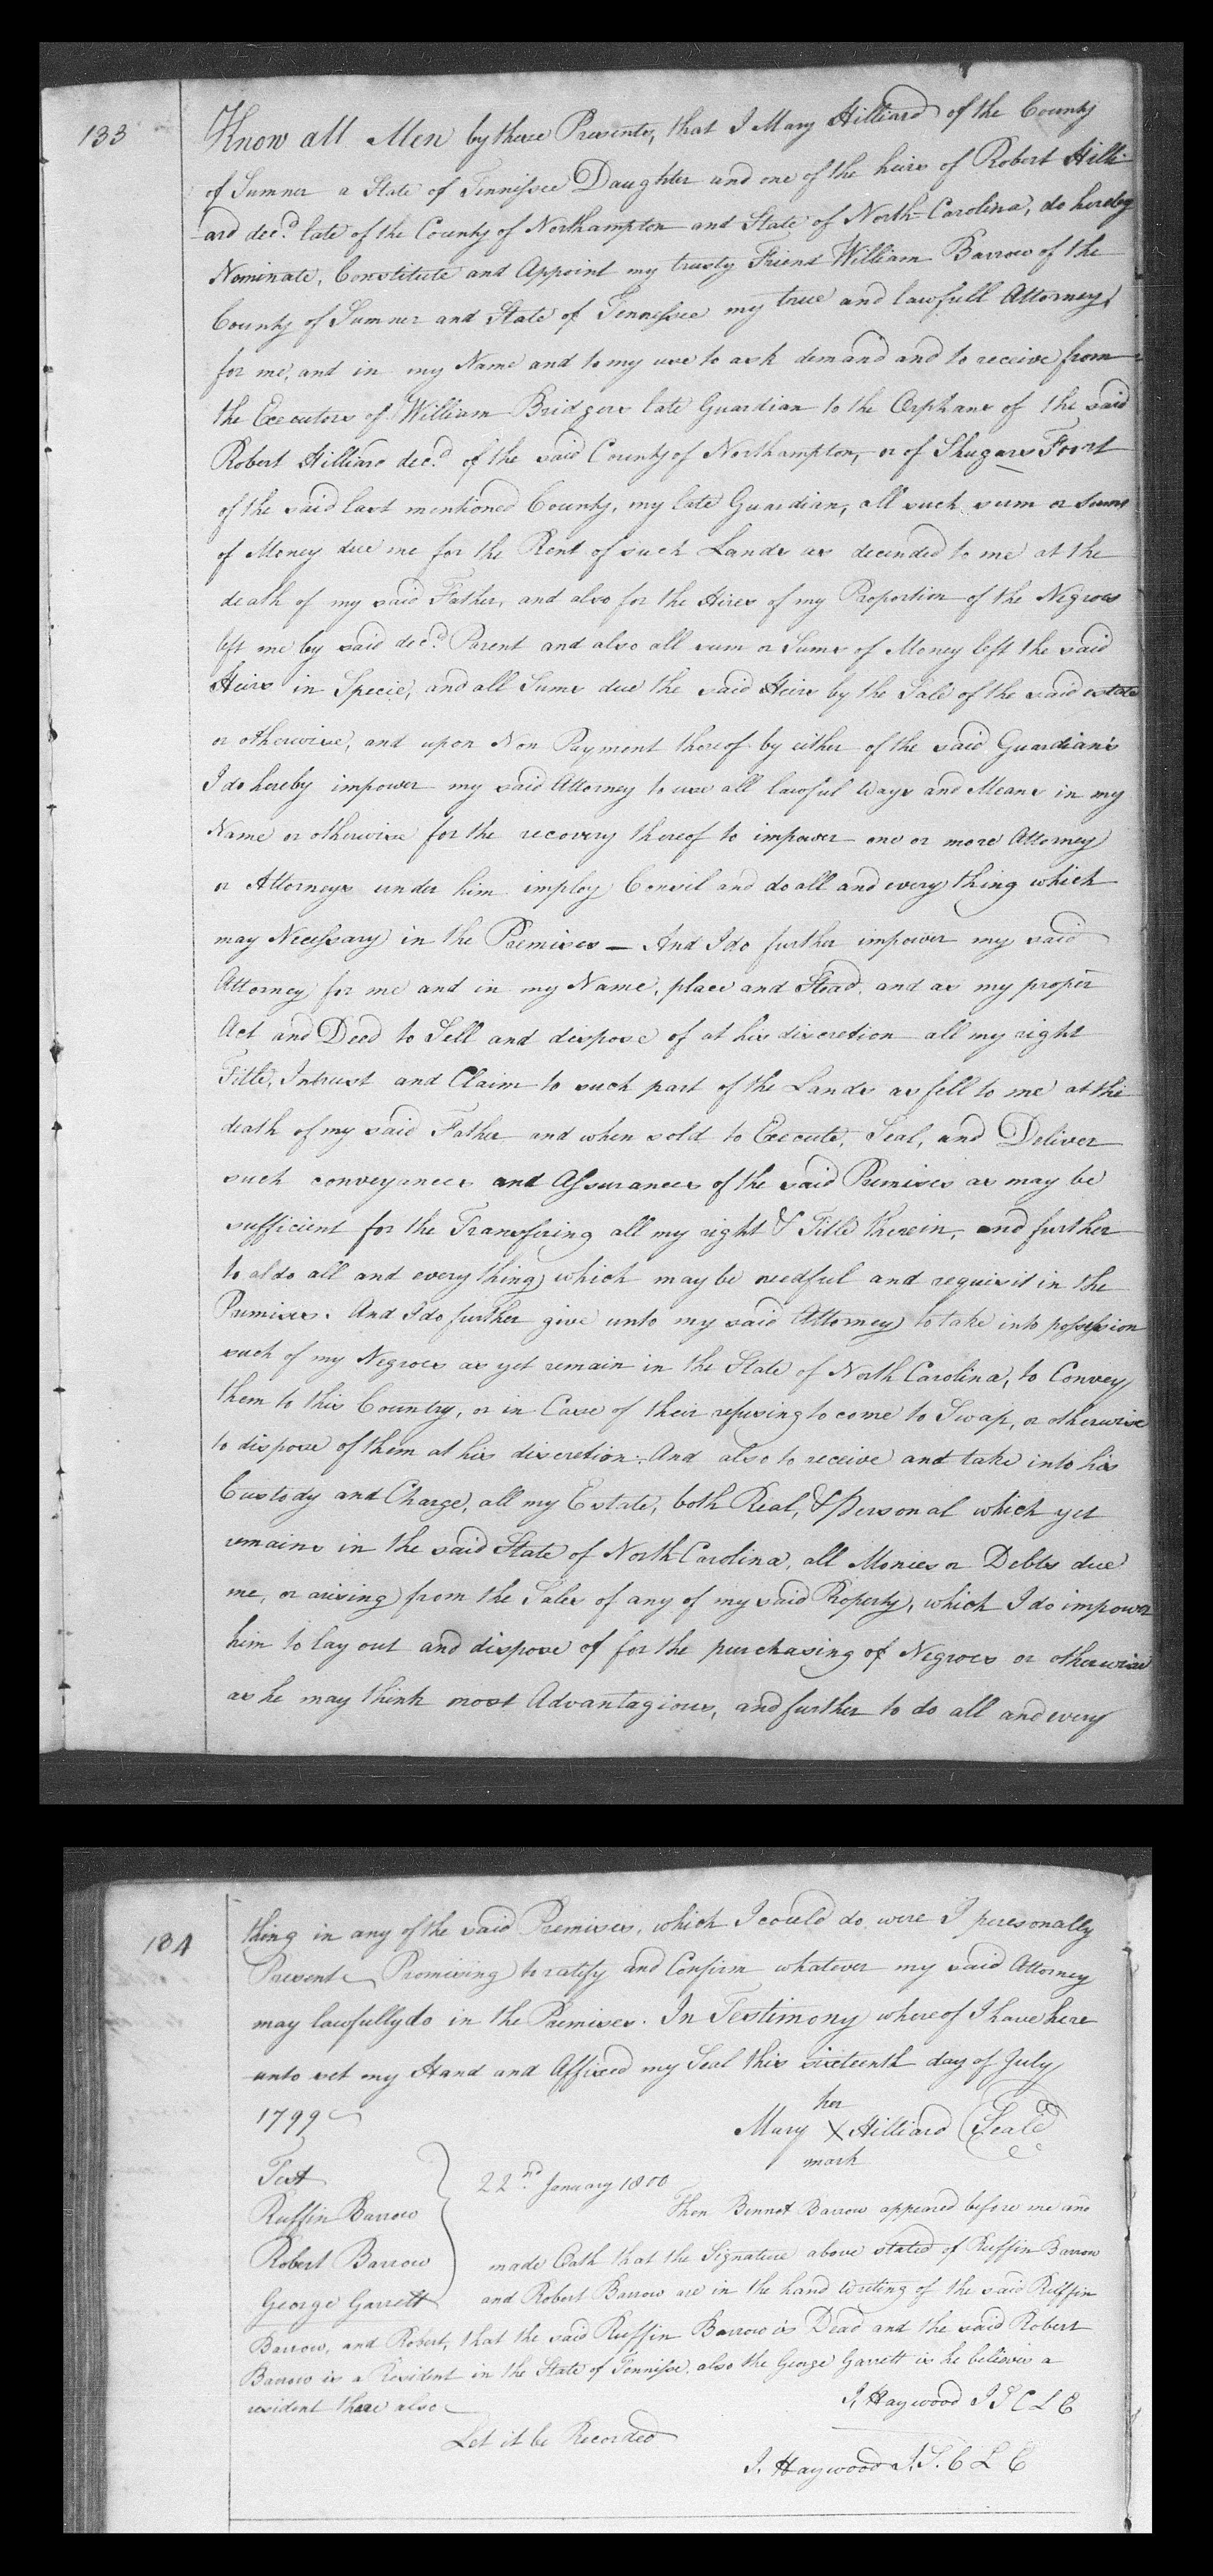 133
Know all Men by these Presents, that I Mary Hilliard of the County
of Sumner a State of Tennissee Daughter and one of the heirs of Robert Hilli-
-ard decd. late of the County of Northampton and State of North-Carolina, do hereby
Nominate, Constitute and Appoint my trusty Friend William Barrow of the
County of Sumner and State of Tennessee my true and lawfull Attorney,
for me, and in my Name and to my use to ask demand and to receive from
the Executors of William Bridgers late Guardian to the Orphans of the said
Robert Hilliard decd. of the said County of Northampton, or of Shugars Foort
of the said last mentioned County, my late Guardian, all such sum or sums
of Money due me for the Rent of such Lands as decended to me at the
death of my said Father, and also for the Hires of my Proportion of the Negroes
left me by said decd. Parent and also all sum or Sums of Money left the said
Heirs in Specie, and all Sums due the said Heirs by the Sale of the said estate
or otherwise, and upon Non Payment thereof by either of the said Guardian's
I do hereby impower my said Attorney to use all lawful Ways and Means in my
Name or otherwise for the recovery thereof to impower one or more Attorney
or Attorneys under him imploy Consil and do all and every thing which
may Necessary in the Premises — And I do further impower my said
Attorney for me and in my Name, place and Stead, and as my proper
Act and Deed to Sell and dispose of at his discretion all my right
Title, Intrust and Claim to such part of the Lands as fell to me at the
death of my said Father and when sold to Execute, Seal, and Deliver
such conveyances and Assurances of the said Premises as may be
sufficient for the Transfiring all my right & Title therein, and further
to al do all and every thing which may be needful and requisit in the
Premises. And I do further give unto my said Attorney to take into possession
such of my Negroes as yet remain in the State of North Carolina, to Convey
them to this Country, or in Case of their refusing to come to Swap, or otherwise
to dispose of them at his discretion. And also to receive and take into his
Custody and Charge, all my Estate, both Real, & Personal which yet
remains in the said State of North-Carolina, all Monies or Debts due
me, or arising from the Sales of any of my said Property, which I do impower
him to lay out and dispose of for the purchasing of Negroes or otherwise
as he may think most Advantagious, and further to do all and every
184
thing in any of the said Premises, which I could do, were I personally
Present Promising to ratify and Confirm whatever my said Attorney
may lawfully do in the Premises. In Testimony whereof I have here
unto set my Hand and Affixed my Seal this sixteenth day of July
1799
her
Mary X Hilliard (Seal)
mark
Test
Ruffin Barrow
Robert Barrow
George Garrett
22nd. January 1800
Then Bennet Barrow appeared before me and
made Oath that the Signature above stated of Ruffin Barrow
and Robert Barrow are in the hand writing of the said Ruffin
Barrow, and Robert, that the said Ruffin Barrow is Dead and the said Robert
Barrow is a Resident in the State of Tennisse, also the George Garrett is he believes a
resident there also
J. Haywood J S C L E
Let it be Recorded
J. Haywood J. S. C L E